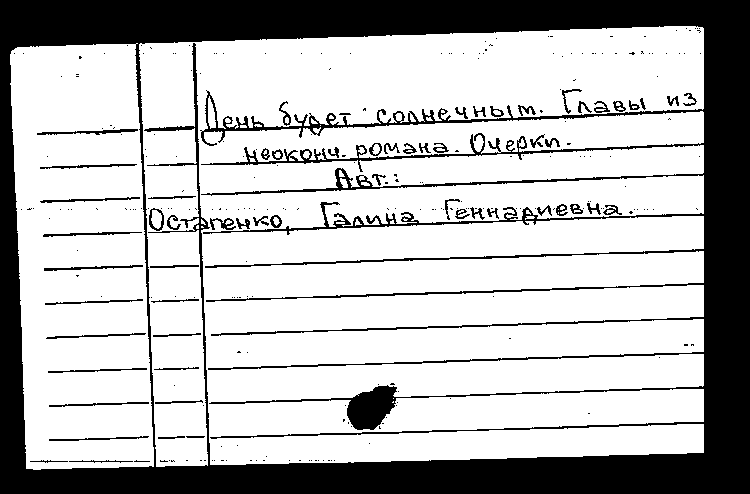 День будет солнечным. Главы из
неоконч. романа. Очерки.
Авт.:
Остапенко, Галина Геннадиевна.